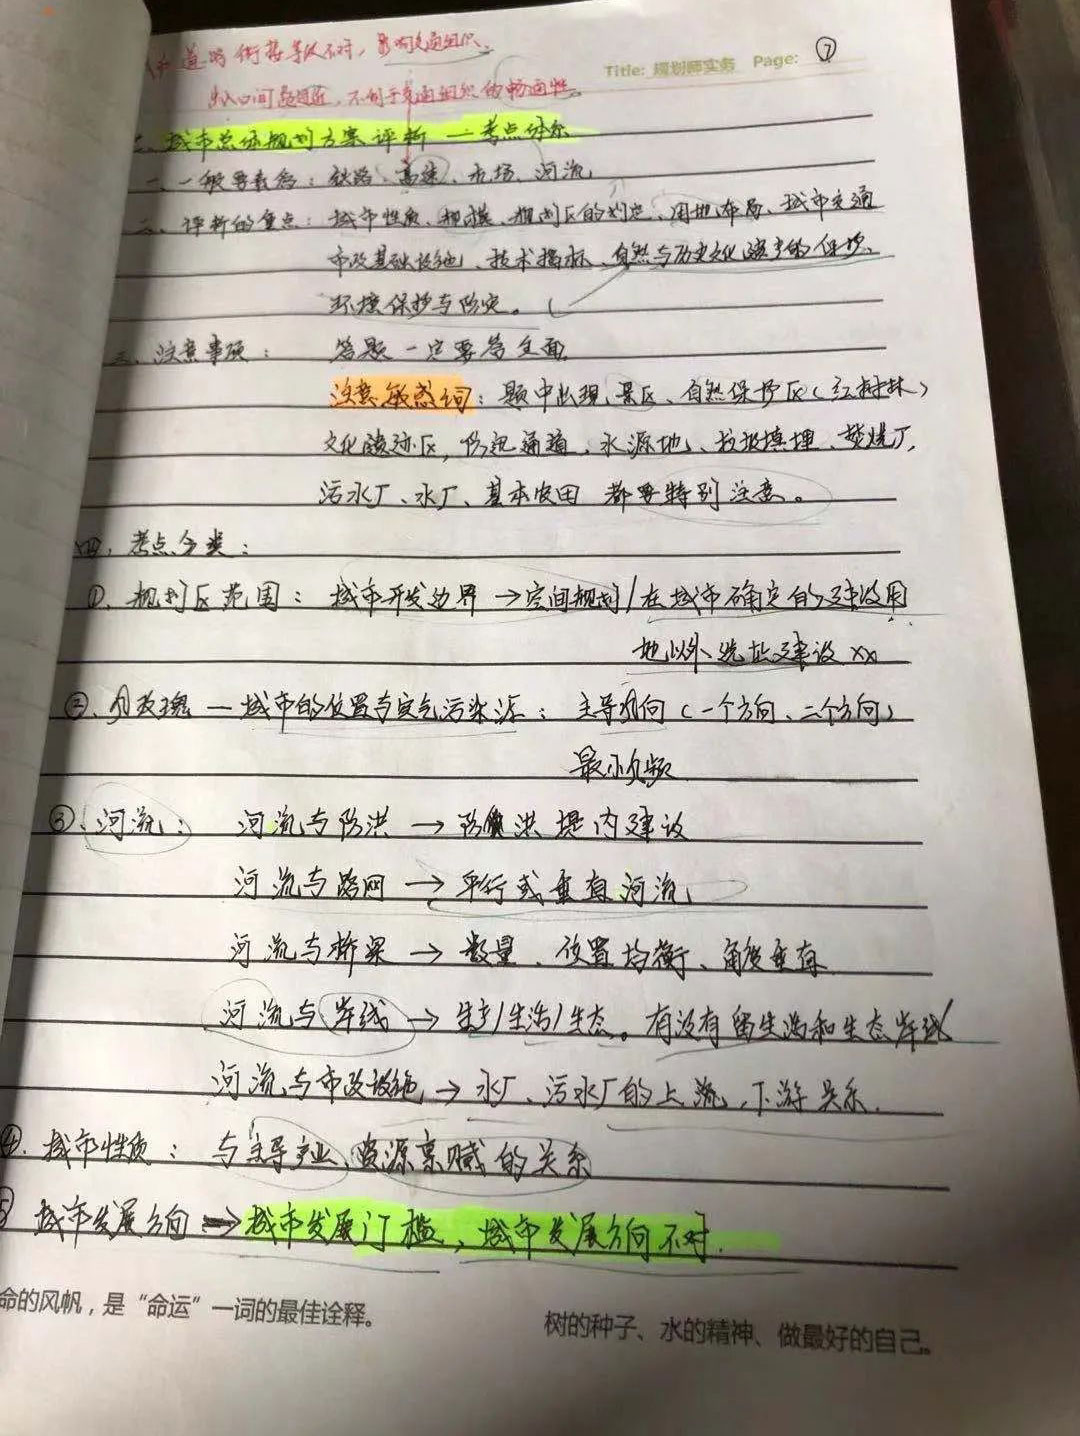 道路衔接等级不对，影响交通组织。
Title: 规划师实务 Page: ⑦
出入口间距过近，不利于交通组织的畅通性。
二、城市总体规划方案评析 — 考点体系
一、一般要素名：铁路、高速、市场、河流
二、评析的重点：城市性质、规模、规划区的划定、用地布局、城市交通
市政基础设施、技术指标、自然与历史文化遗产的保护、
环境保护与防灾。
三、注意事项：答题一定要答全面
注意敏感词：题中出现景区、自然保护区(红树林)
文化遗迹区，防汛通道、水源地、垃圾填埋、焚烧厂，
污水厂、水厂、基本农田 都要特别注意。
四、考点分类：
①、规划区范围：城市开发边界→空间规划/在城市确定的建设用
地以外选址建设xx
②、风玫瑰 — 城市的位置与空气污染源：主导风向(一个方向、二个方向)
最小风频
③、河流：河流与防洪→防洪堤内建设
河流与路网→平行或垂直河流
河流与桥梁→数量、位置均衡、角度垂直
河流与岸线→生产/生活/生态。有没有留生活和生态岸线
河流与市政设施→水厂、污水厂的上流、下游关系.
④、城市性质：与主导产业、资源禀赋的关系
⑤ 城市发展方向→城市发展门槛，城市发展方向不对.
命的风帆，是“命运”一词的最佳诠释。
树的种子、水的精神、做最好的自己。